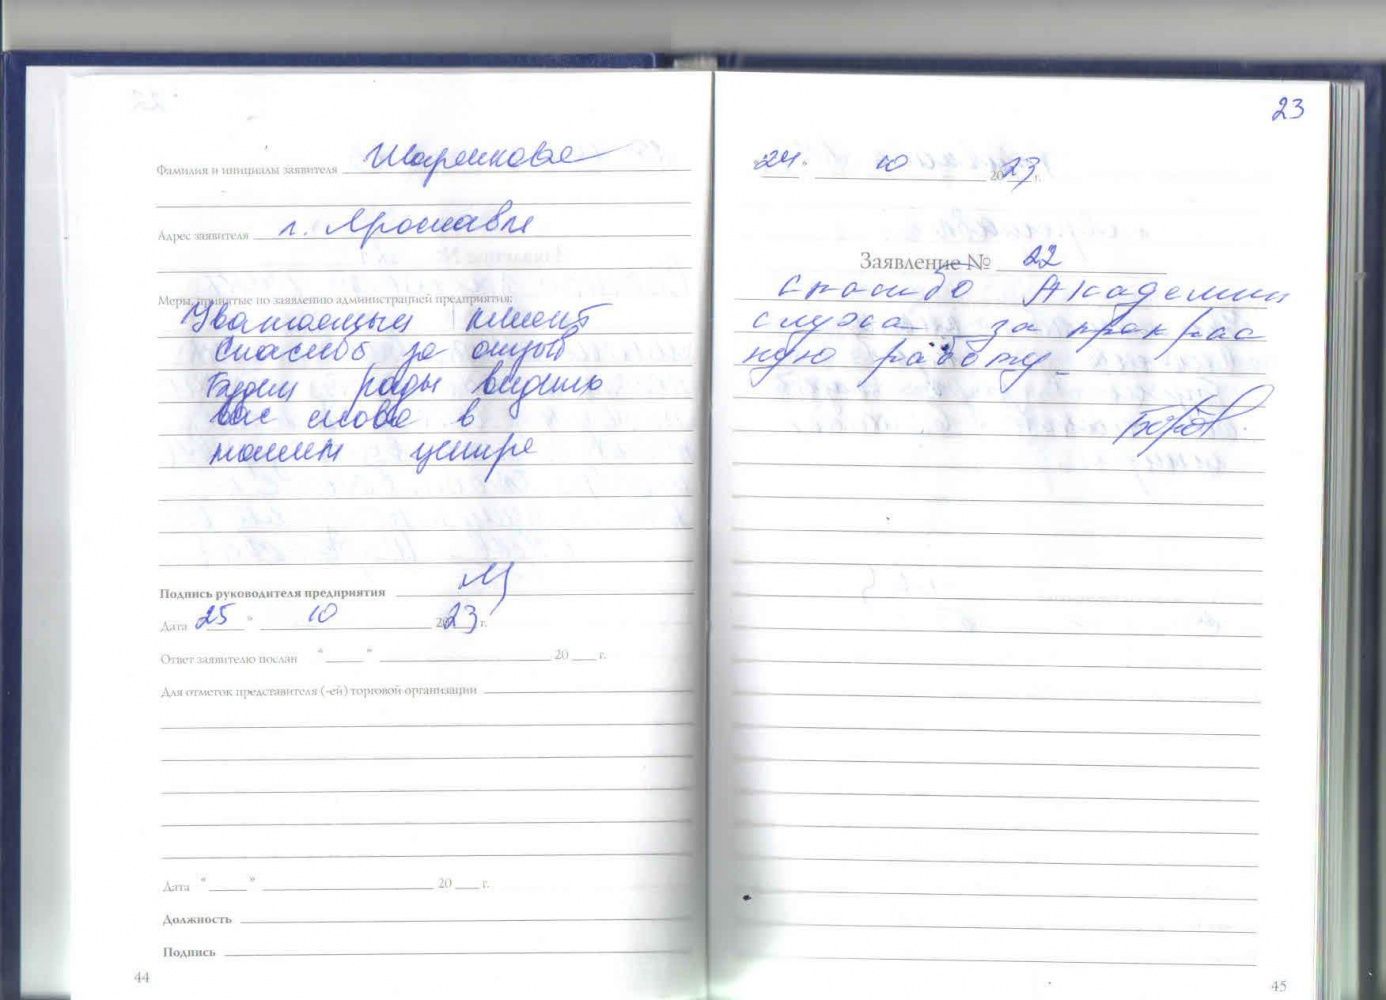 Фамилия и инициалы заявителя Шаренкова
Адрес заявителя г. Ярославль
Меры, принятые по заявлению администрацией предприятия:
Уважаемый клиент
Спасибо за отзыв
Будем рады видеть
вас снова в
нашем центре
Подпись руководителя предприятия
Дата 25 " 10 2023 г.
Ответ заявителю послан " " 20 г.
Для отметок представителя (-ей) торговой организации
Дата " " 20 г.
Должность
Подпись
44
23
"24" 10 2023 г.
Заявление № 22
Спасибо Академии
слуха за прекрас
ную работу
45